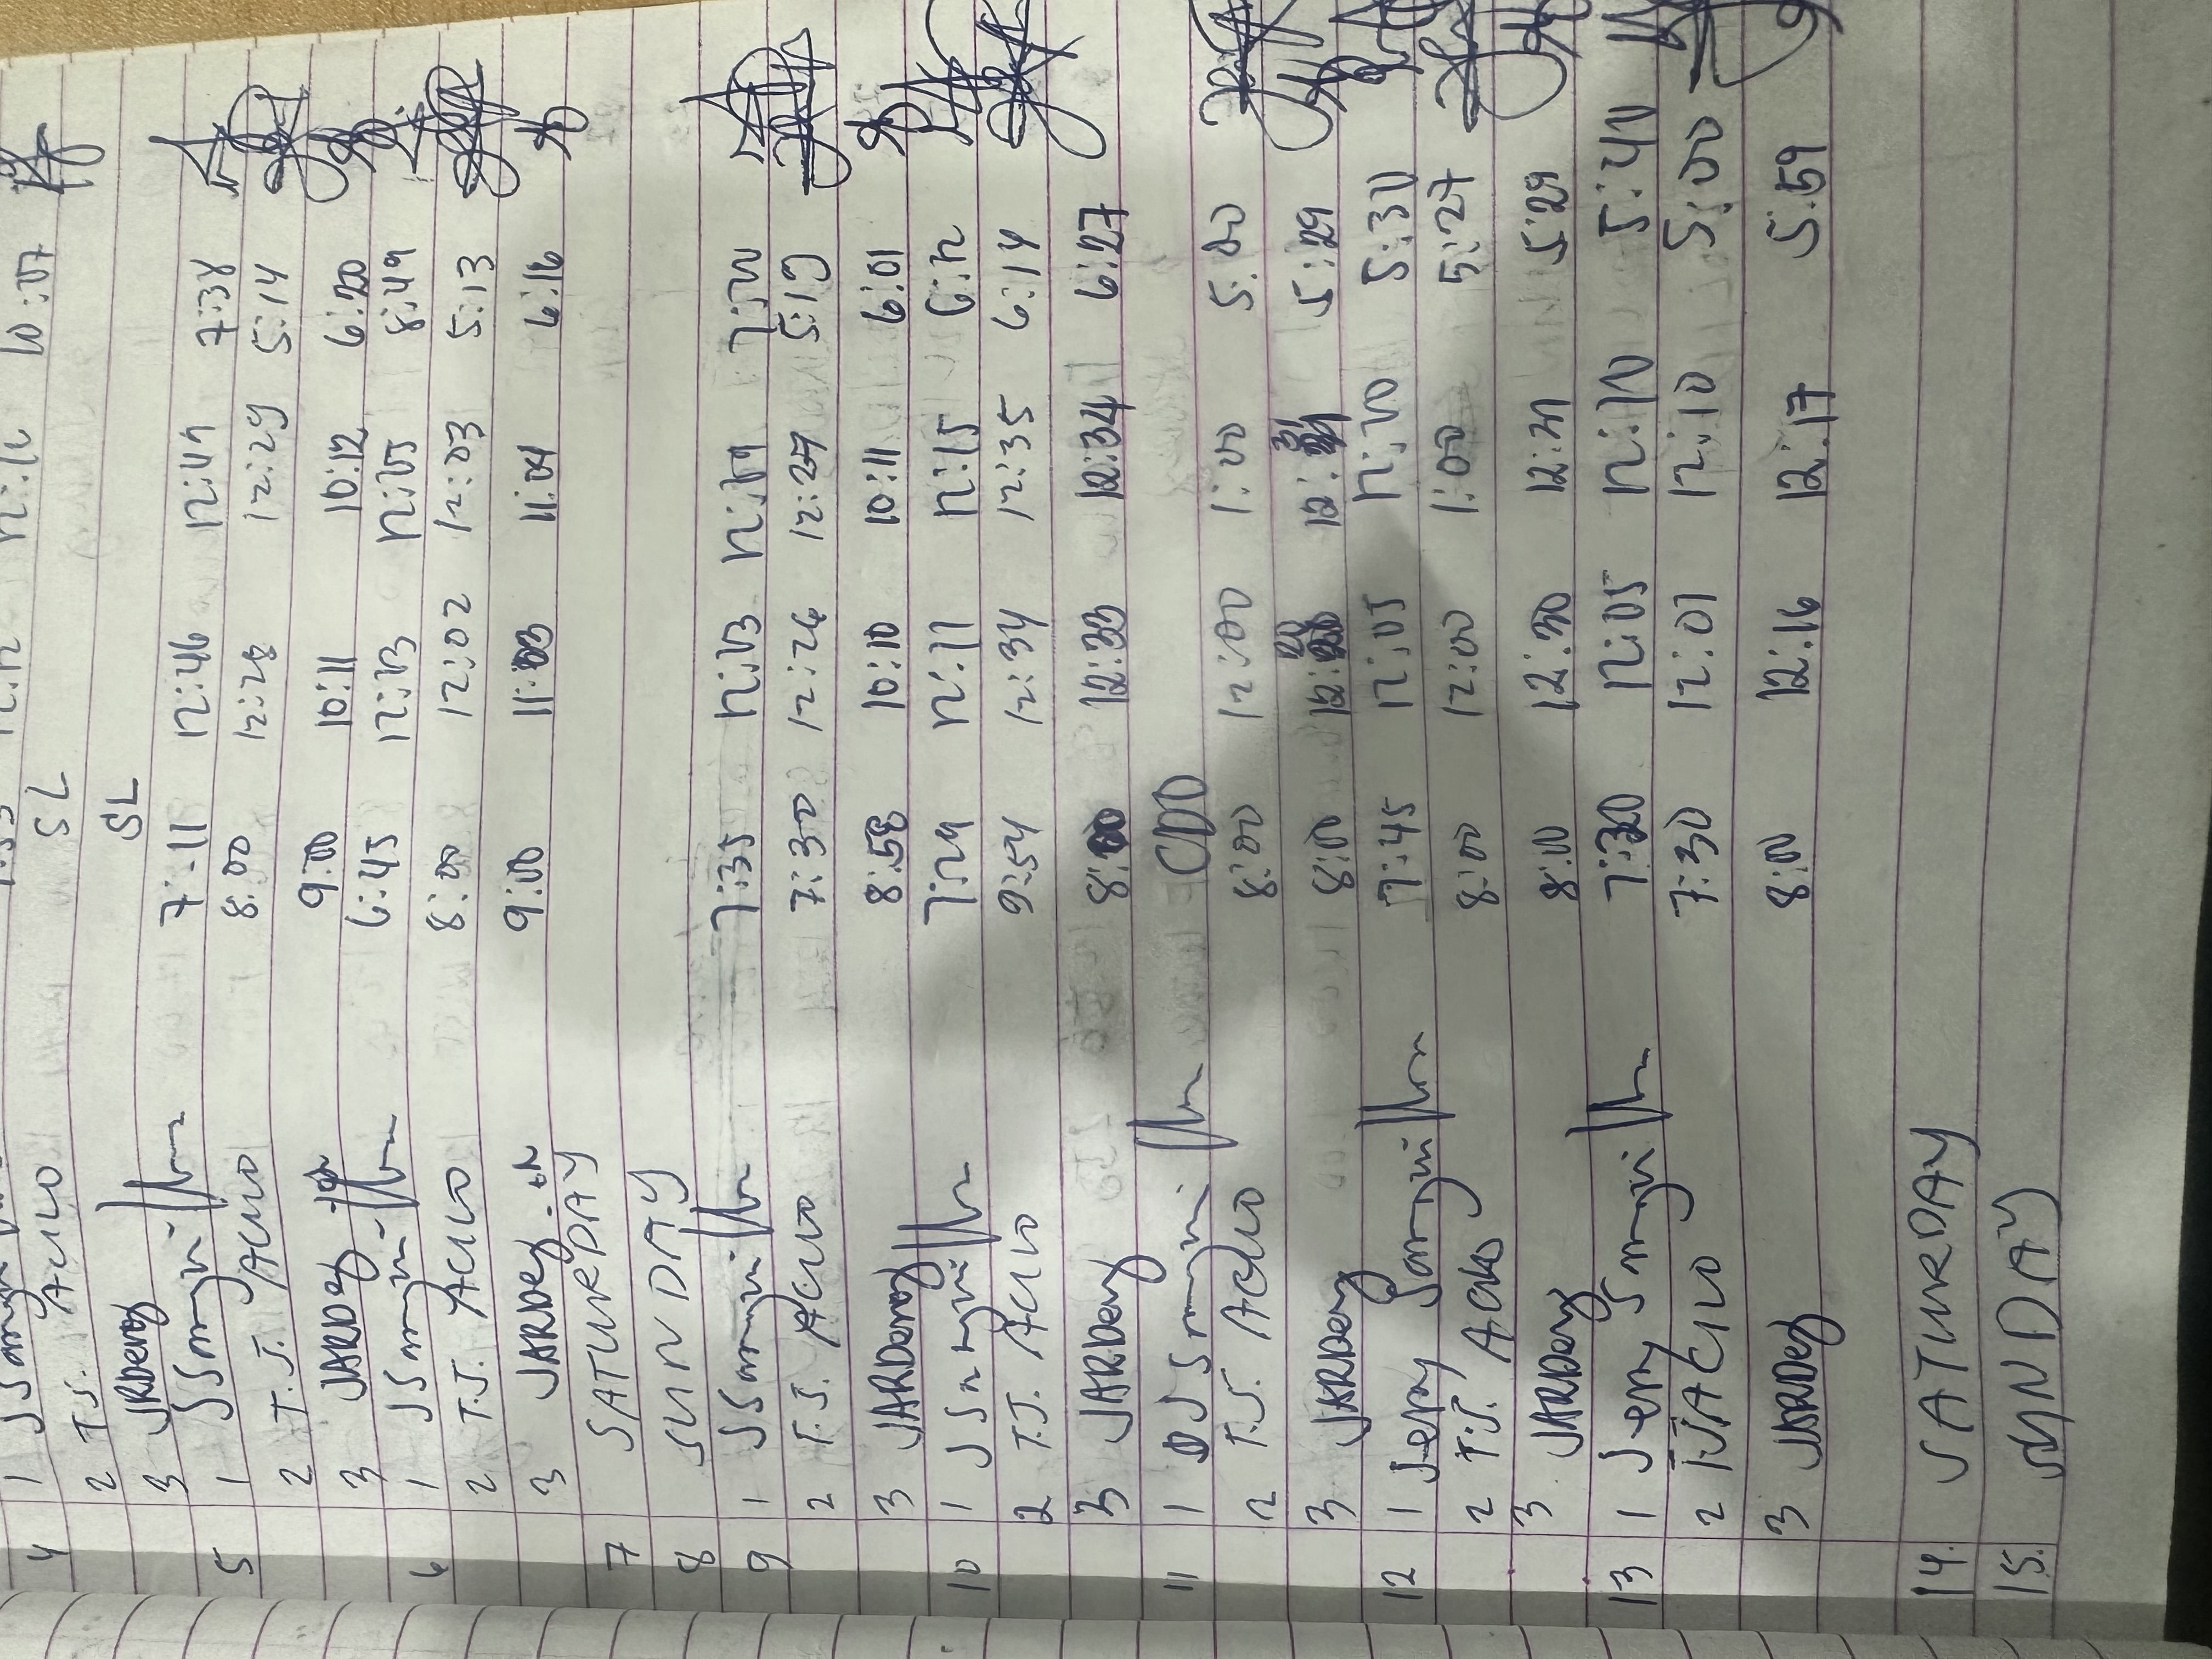 4 1 10:07
2 T.S. ACLO SL
3 JARDeny SL
5 1 7:11 12:46 12:49 7:38
2 T.J. ACLO 8:00 12:28 12:29 5:14
3 JARDeny 9:00 10:11 10:12 6:20
6 1 6:45 12:03 12:05 8:49
2 T.J. ACLO 8:00 12:02 12:03 5:13
3 JARDeny 9:00 11:03 11:04 6:16
7 SATURDAY
8 SUNDAY
9 1 7:35 12:03 12:09
2 T.J. ACLO 7:30 12:26 12:27 5:19
3 JARDeny 8:58 10:10 10:11 6:01
10 1 7:29 12:11 12:15 6:12
2 T.J. ACLO 9:54 12:34 12:35 6:14
3 JARDeny 8:00 12:33 12:34 6:27
11 1 CDO
2 T.J. ACLO 8:00 12:00 1:00 5:00
3 JARDeny 8:00 5:29
12 1 Jerry 7:45 12:05 12:10 5:30
2 T.J. ACLO 8:00 12:00 1:00 5:27
3 JARDeny 8:00 12:30 12:31 5:29
13 1 Jerry 12:05 12:10 5:40
2 T.J ACLO 7:30 12:01 12:10 5:00
3 JARDeny 8:00 12:16 12:17 5:59
14. SATURDAY
15. SUNDAY